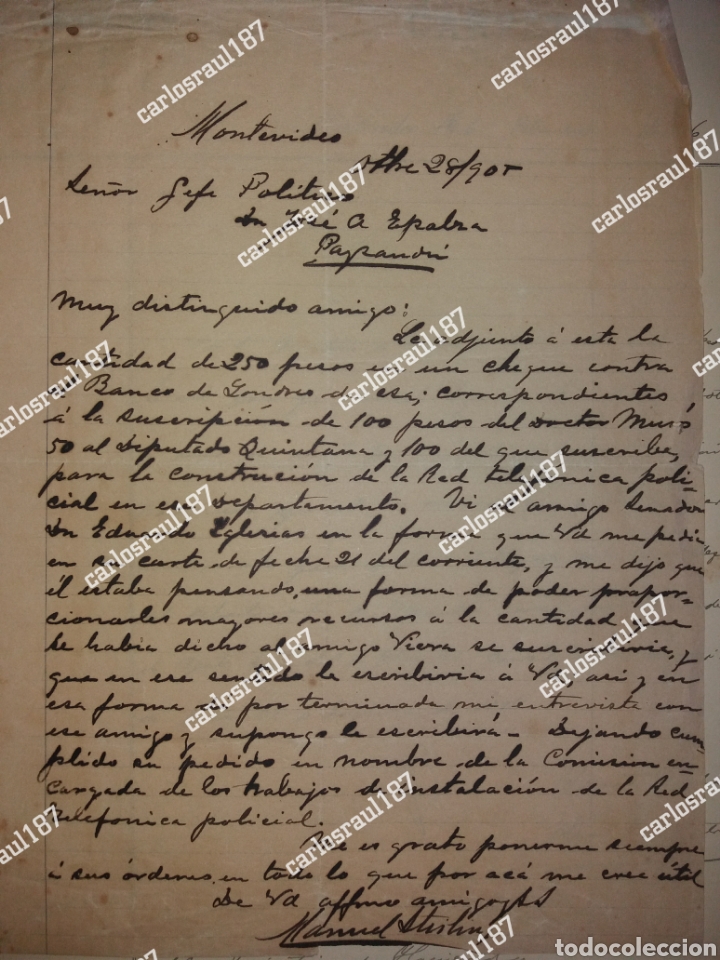 Montevideo
28/905
Señor Gefe Politico
Dn José A Epalza
Paysandú
Muy distinguido amigo:
Le adjunto á esta la
cantidad de 250 pesos en un cheque contra
el Banco de Londres de esa; correspondientes
á la suscripción de 100 pesos del Doctor Muró
50 al Diputado Quintana y 100 del que suscribe,
para la construción de la Red telefónica poli-
cial en ese Departamento. Vi al amigo Senador
Dn Eduardo Iglesias en la forma que Vd me pedia
en su carta de fecha 21 del corriente, y me dijo que
él estaba pensando, una forma de poder propor-
cionarles mayores recursos á la cantidad que
se habia dicho al amigo Viera se suscribiria, y
que en ese sentido le escribiria á Vd, asi y en
esa forma por terminada mi entrevista con
ese amigo y supongo le escribirá - Dejando cum-
plido su pedido en nombre de la Comision en-
cargada de los trabajos de instalación de la Red
telefonica policial.
Me es grato ponerme siempre
á sus órdenes en todo lo que por acá me cree útil
De Vd affmo amigo
Manuel
carlosraul187
todocoleccion